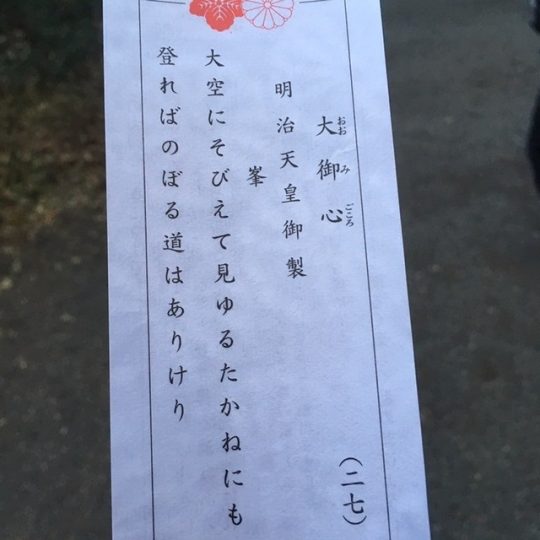 大御心
おおみごころ
(二七)
明治天皇御製
峯
大空にそびえて見ゆるたかねにも
登ればのぼる道はありけり